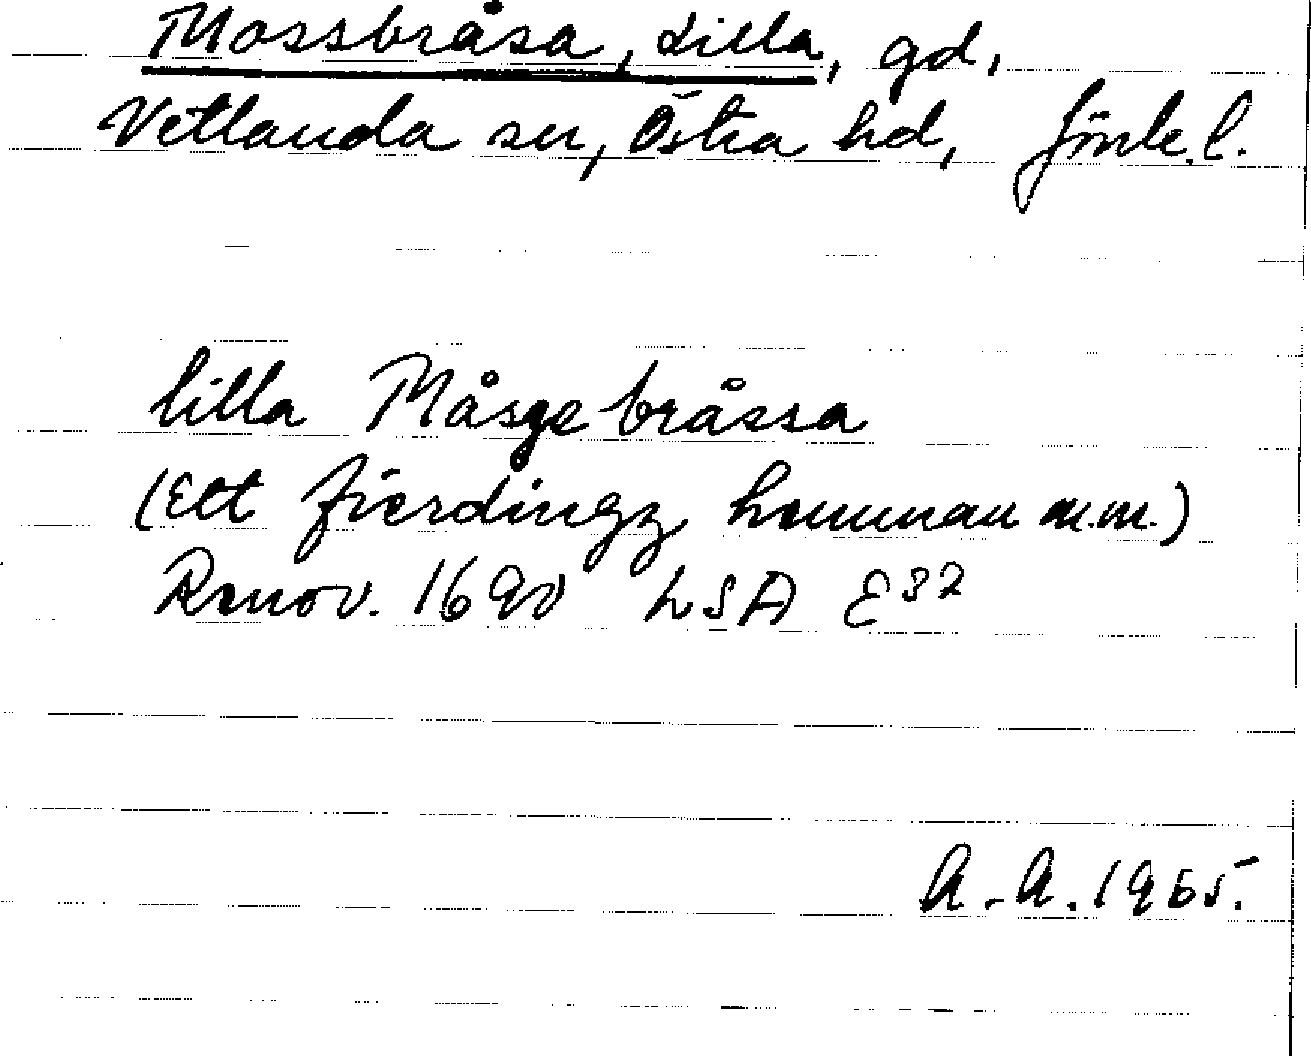 Mossbråsa, Lilla, gd,
Vetlanda sn, Östra hd, Jönk.l.
lilla Måsgebråssa
(Ett fierdingz hemman m.m.)
Renov. 1690 LSA E32
A.-A. 1965.